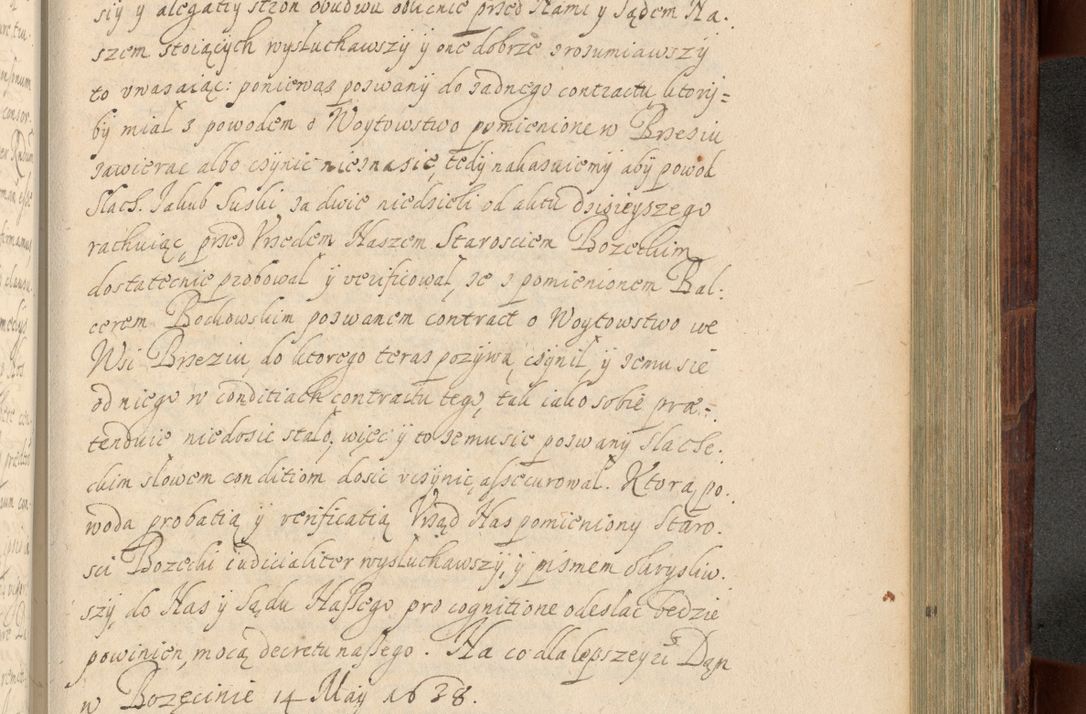 siy y alegatiy stron obudwu oblicnie przed Nami y Sądem Na-
szem stoiących wysłuchawszy y one dobrze srosumiawszy
to vwasaiąc: poniewas poswany do sadnego contractu, ktory=
by mial s powodem o Woytowstwo pomienione w Brzesiu
sawierac albo csynic nie sna sie, tedy nakasuiemy aby powod
Slach. Jakub Suski sa dwie niedsieli od aktu dsisieyszego
rachuiąc, przed Vrzedem Naszem Starosciem Bozeckim
dostatecnie probował y verificował, se s pomienionem Bal:
cerem Bockowskim poswanem contract o Woytowstwo we
Wsi Brzeziu, do ktorego teras pozywa, csynil, y semu sie
od niego w conditiach contractu tego, tak iako sobie præ-
tenduie niedosic stało, więc y to semu sie poswany slache.
ckim słowem conditiom dosic vcsynic, assecurował. Ktorą po.
woda probatią y verificatią Vrząd Nas pomieniony Staro.
sci Bozecki iudicialiter wysłuchawszy, y pismem okrysliw.
szy, do Nas y Sądu Nassego pro cognitione odeslac bedzie
powinien, mocą decretu nassego. Na co dla lepszey ei Dąn
w Bozęcinie 14 May 1638.